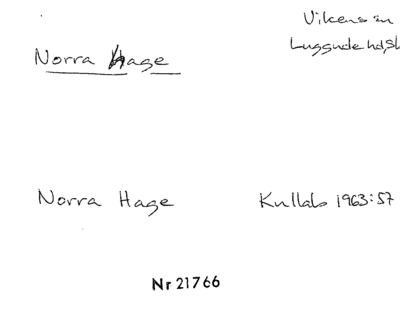 Vikens sn
Luggude hd, Sk
Norra Hage
Norra Hage Kullab 1963:57
Nr 21766